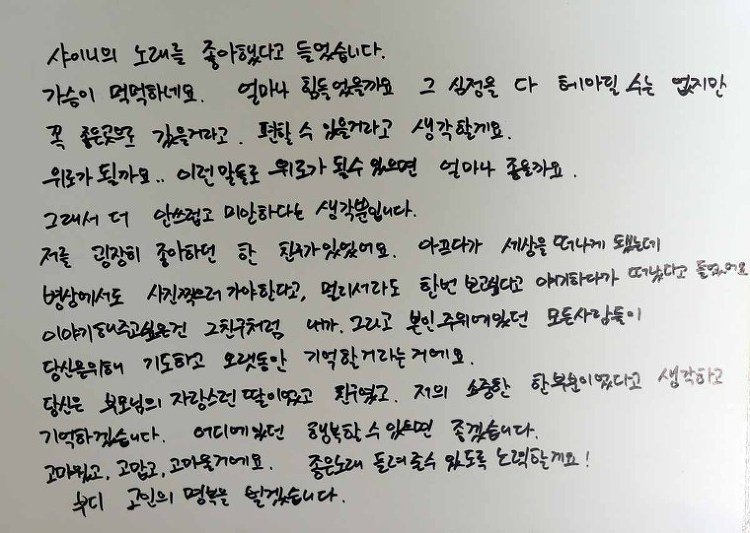 샤이니의 노래를 좋아했다고 들었습니다.
가슴이 먹먹하네요. 얼마나 힘들었을까요 그 심정을 다 헤아릴 수는 없지만
꼭 좋은곳으로 갔을거라고. 편할 수 있을거라고 생각할게요.
위로가 될까요.. 이런 말들로 위로가 될수 있으면 얼마나 좋을까요.
그래서 더 안쓰럽고 미안하다는 생각뿐입니다.
저를 굉장히 좋아하던 한 친구가 있었어요. 아프다가 세상을 떠나게 됐는데
병상에서도 사진찍으러 가야한다고, 멀리서라도 한번 보고싶다고 얘기하다가 떠났다고 들었어요
이야기해주고싶은건 그친구처럼 내가. 그리고 본인주위에있던 모든사람들이
당신을위해 기도하고 오랫동안 기억할거라는거예요.
당신은 부모님의 자랑스런 딸이었고 친구였고. 저의 소중한 한부분이었다고 생각하고
기억하겠습니다. 어디에있던 행복할 수 있으면 좋겠습니다.
고마웠고, 고맙고, 고마울거에요. 좋은노래 들려줄수 있도록 노력할게요!
부디 고인의 명복을 빌겠습니다.